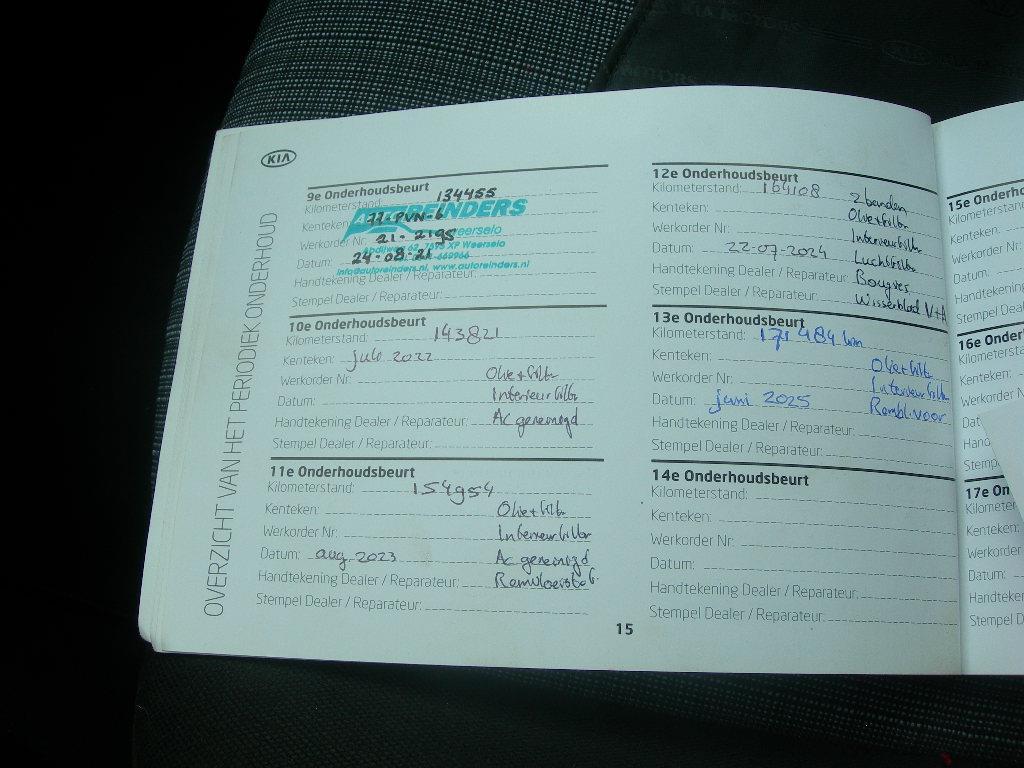 KIA
OVERZICHT VAN HET PERIODIEK ONDERHOUD
9e Onderhoudsbeurt
Kilometerstand: 134455
Kenteken: 77-PVN-6
REINDERS
Werkorder Nr: 21-2195
Weerselo
Abdijweg 62, 7595 XP Weerselo
Datum: 24-08-21
-669966
info@autoreinders.nl, www.autoreinders.nl
Handtekening Dealer / Reparateur:
Stempel Dealer / Reparateur:
10e Onderhoudsbeurt
Kilometerstand: 143821
Kenteken: juli 2022
Werkorder Nr: Olie+filter
Datum: Interieurfilter
Handtekening Dealer / Reparateur: Ac gereinigd
Stempel Dealer / Reparateur:
11e Onderhoudsbeurt
Kilometerstand: 154954
Kenteken: Olie+filter
Werkorder Nr: Interieurfilter
Datum: aug 2023 Ac gereinigd
Handtekening Dealer / Reparateur: Remvloeistof
Stempel Dealer / Reparateur:
12e Onderhoudsbeurt
Kilometerstand: 164108 2banden
Kenteken: Olie+filter
Werkorder Nr: Interieurfilter
Datum: 22-07-2024 Luchtfilter
Handtekening Dealer / Reparateur: Bougies
Stempel Dealer / Reparateur: Wisserblad V+A
13e Onderhoudsbeurt
Kilometerstand: 171484 km
Kenteken: Olie+filter
Werkorder Nr: Interieurfilter
Datum: juni 2025 Rembl. voor
Handtekening Dealer / Reparateur:
Stempel Dealer / Reparateur:
14e Onderhoudsbeurt
Kilometerstand:
Kenteken:
Werkorder Nr:
Datum:
Handtekening Dealer / Reparateur:
Stempel Dealer / Reparateur:
15
15e Onder
Kilometerstand
Kenteken:
Werkorder Nr:
Datum:
Handteken
Stempel Deal
16e Onder
Kilometerst
Kenteken:
Werkorder N
Dat
Hand
Stemp
17e On
Kilometer
Kenteken:
Werkorder
Datum:
Handteke
Stempel D